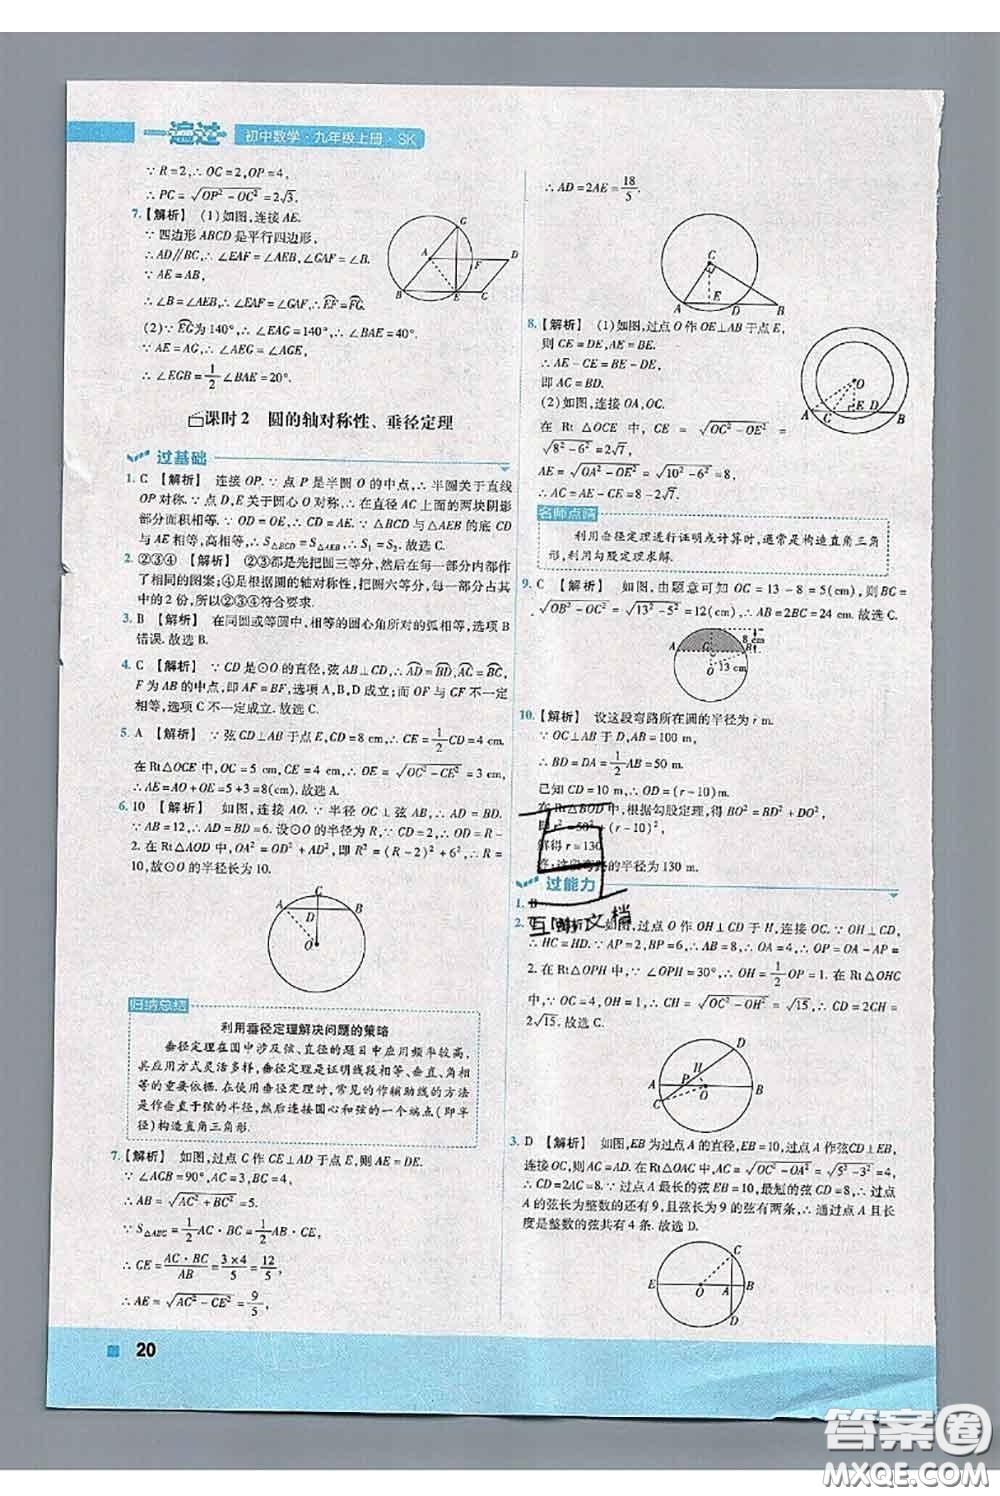 一遍过 初中数学·九年级上册·SK
∵R=2,∴OC=2,OP=4,
∴PC=√(OP²-OC²)=2√3.
7.【解析】 (1)如图,连接AE.
∵四边形ABCD是平行四边形,
∴AD∥BC,∴∠EAF=∠AEB,∠GAF=∠B.
∵AE=AB,
∴∠B=∠AEB,∴∠EAF=∠GAF,∴EF=FG.
(2)∵EG为140°,∴∠EAG=140°,∴∠BAE=40°.
∵AE=AG,∴∠AEG=∠AGE,
∴∠EGB=1/2∠BAE=20°.
G
A F D
B E C
课时2 圆的轴对称性、垂径定理
过基础
1. C 【解析】 连接OP.∵点P是半圆O的中点,∴半圆关于直线
OP对称.∵点D,E关于圆心O对称,∴在直径AC上面的两块阴影
部分面积相等.∵OD=OE,∴CD=AE.∵△BCD与△AEB的底CD
与AE相等,高相等,∴S△BCD=S△AEB,∴S₁=S₂.故选C.
2. ②③④ 【解析】 ②③都是先把圆三等分,然后在每一部分内都作
了相同的图案;④是根据圆的轴对称性,把圆六等分,每一部分占其
中的2份,所以②③④符合要求.
3. B 【解析】 在同圆或等圆中,相等的圆心角所对的弧相等,选项B
错误.故选B.
4. C 【解析】 ∵CD是⊙O的直径,弦AB⊥CD,∴AD=BD,AC=BC,
F为AB的中点,即AF=BF,选项A,B,D成立;而OF与CF不一定
相等,选项C不一定成立.故选C.
5. A 【解析】 ∵弦CD⊥AB于点E,CD=8 cm,∴CE=1/2CD=4 cm.
在Rt△OCE中,OC=5 cm,CE=4 cm,∴OE=√(OC²-CE²)=3 cm,
∴AE=AO+OE=5+3=8(cm).故选A.
6. 10 【解析】 如图,连接AO.∵半径OC⊥弦AB,∴AD=BD.
∵AB=12,∴AD=BD=6.设⊙O的半径为R,∵CD=2,∴OD=R-
2.在Rt△AOD中,OA²=OD²+AD²,即R²=(R-2)²+6²,∴R=
10,故⊙O的半径长为10.
C
A D B
O
归纳总结
利用垂径定理解决问题的策略
垂径定理在圆中涉及弦、直径的题目中应用频率较高,
其应用方式灵活多样,垂径定理是证明线段相等、垂直、角相
等的重要依据.在使用垂径定理时,常见的作辅助线的方法
是作垂直于弦的半径,然后连接圆心和弦的一个端点(即半
径)构造直角三角形.
7.【解析】 如图,过点C作CE⊥AD于点E,则AE=DE.
∵∠ACB=90°,AC=3,BC=4,
∴AB=√(AC²+BC²)=5.
∵S△ABC=1/2AC·BC=1/2AB·CE,
∴CE=AC·BC/AB=3×4/5=12/5,
∴AE=√(AC²-CE²)=9/5,
20
∴AD=2AE=18/5.
C
A E D B
8.【解析】 (1)如图,过点O作OE⊥AB于点E,
则CE=DE,AE=BE.
∴AE-CE=BE-DE,
即AC=BD.
(2)如图,连接OA,OC.
在Rt△OCE中,CE=√(OC²-OE²)=
√(8²-6²)=2√7,
AE=√(OA²-OE²)=√(10²-6²)=8,
∴AC=AE-CE=8-2√7.
O
A C E D B
名师点睛
利用垂径定理进行证明或计算时,通常是构造直角三角
形,利用勾股定理求解.
9. C 【解析】 如图,由题意可知OC=13-8=5(cm),则BC=
√(OB²-OC²)=√(13²-5²)=12(cm),∴AB=2BC=24 cm.故选C.
A C B 8 cm
13 cm
O
10.【解析】 设这段弯路所在圆的半径为r m.
∵OC⊥AB于D,AB=100 m,
∴BD=DA=1/2AB=50 m.
已知CD=10 m,∴OD=(r-10)m.
在Rt△BOD中,根据勾股定理,得BO²=BD²+DO²,
即r²=50²+(r-10)²,
解得r=130.
答:这段弯路的半径为130 m.
过能力
1. B
2. 【解析】 如图,过点O作OH⊥CD于H,连接OC.∵OH⊥CD,
∴HC=HD.∵AP=2,BP=6,∴AB=8,∴OA=4,∴OP=OA-AP=
2.在Rt△OPH中,∵∠OPH=30°,∴OH=1/2OP=1.在Rt△OHC中,
∵OC=4,OH=1,∴CH=√(OC²-OH²)=√15,∴CD=2CH=
2√15.故选C.
互动文档
D
H
A P O B
C
3. D 【解析】 如图,EB为过点A的直径,EB=10,过点A作弦CD⊥EB,
连接OC,则OC=5,OA=3.在Rt△OAC中,AC=√(OC²-OA²)=√(5²-3²)=4,
∴CD=2AC=8.∵过点A最长的弦EB=10,最短的弦CD=8,∴过点A
的弦的弦长为整数的还有9,且弦长为9的有两条,∴通过点A且弦长
度是整数的弦共有4条.故选D.
C
E O A B
D
答案圈
MXQE.COM